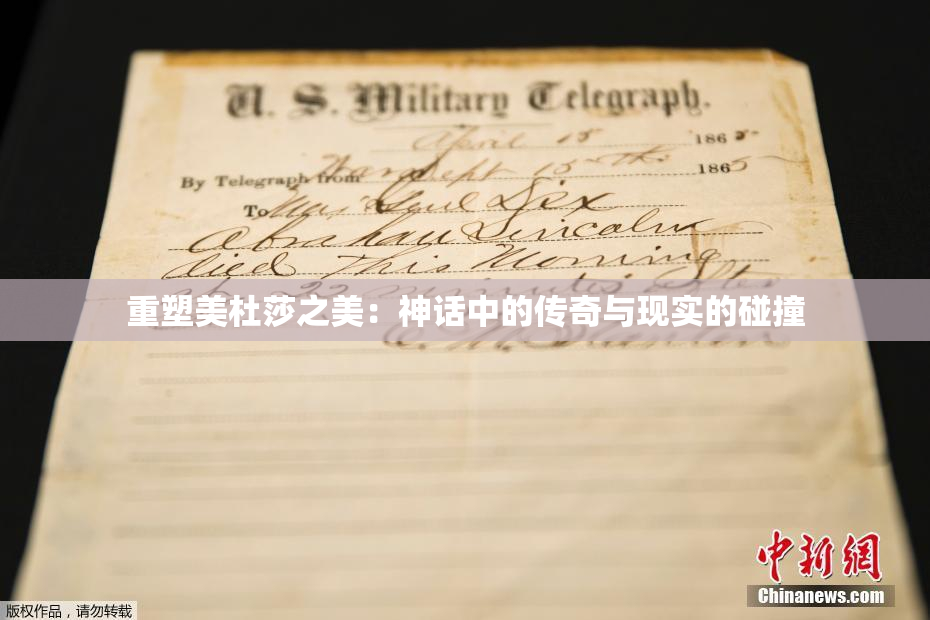 U. S. Military Telegraph.
April 15 1865
By Telegraph from War Dept 15th 1865
To Maj Genl Dix
Abraham Lincoln
died This Morning
at 22 minutes after
重塑美杜莎之美：神话中的传奇与现实的碰撞
中新网
Chinanews.com
版权作品，请勿转载